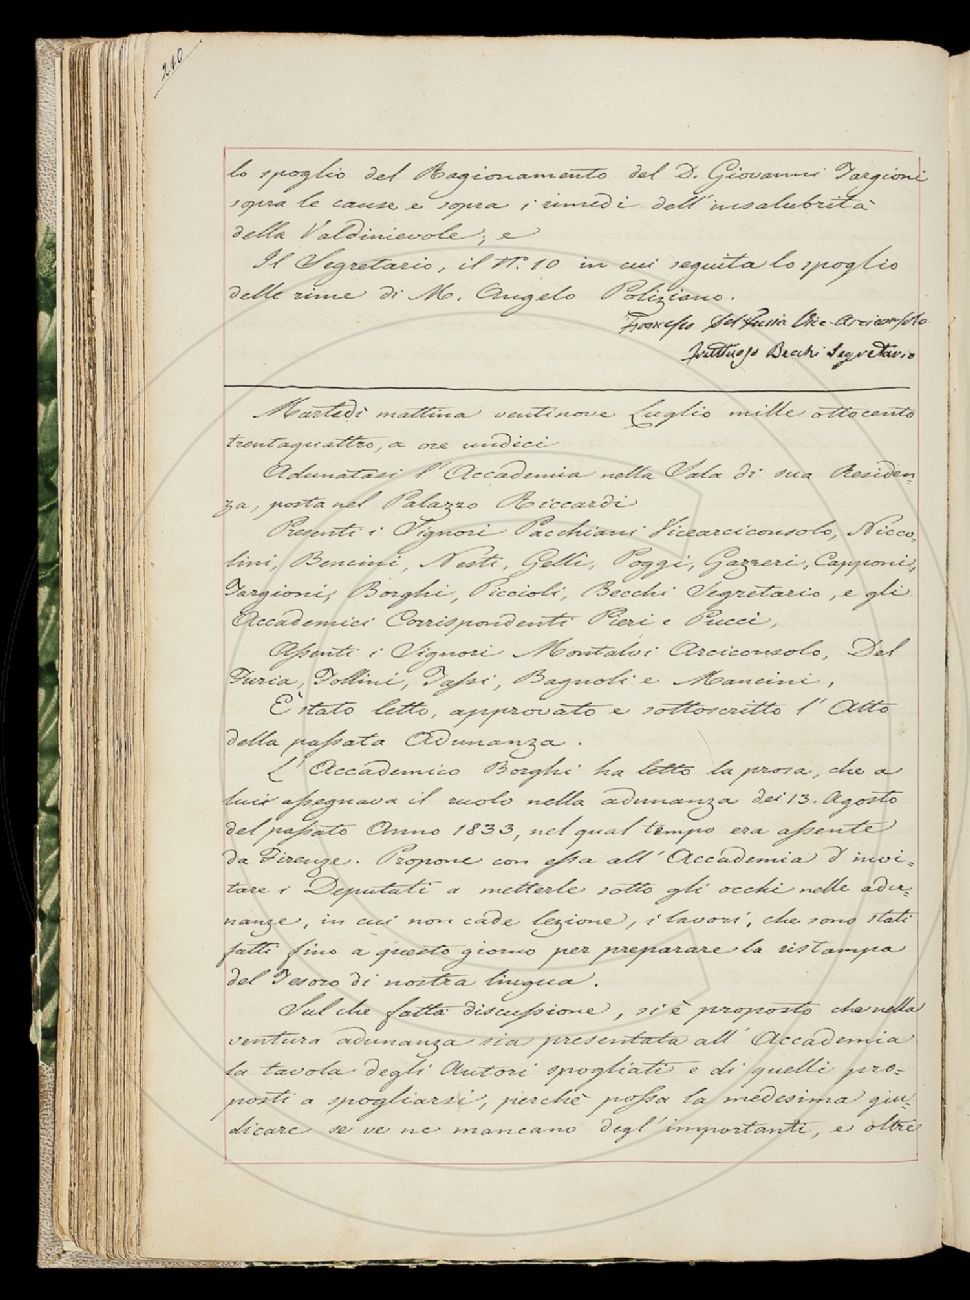 210
lo spoglio del Ragionamento del D. Giovanni Targioni
sopra le cause e sopra i rimedi dell'insalubrità
della Valdinievole; e
Il Segretario, il N.º 10 in cui seguita lo spoglio
delle rime di M. Angelo Poliziano.
Francesco Del Furia Vice-Arciconsolo
Fruttuoso Becchi Segretario
Martedì mattina ventinove Luglio mille ottocento
trentaquattro, a ore undici
Adunatasi l'Accademia nella Sala di sua Residen-
za, posta nel Palazzo Riccardi
Presenti i Signori Pacchiani Vicearciconsolo, Nicco-
lini, Bencini, Nesti, Gelli, Poggi, Gazzeri, Capponi,
Targioni, Borghi, Piccioli, Becchi Segretario, e gli
Accademici Corrispondenti Pieri e Pucci,
Assenti i Signori Montalvi Arciconsolo, Del
Furia, Follini, Tassi, Bagnoli e Mancini,
È stato letto, approvato e sottoscritto l'Atto
della passata Adunanza.
L'Accademico Borghi ha letto la prosa, che a
lui assegnava il ruolo nella adunanza dei 13. Agosto
del passato Anno 1833, nel qual tempo era assente
da Firenze. Propone con essa all'Accademia d'invi-
tare i Deputati a metterle sotto gli occhi nelle adu-
nanze, in cui non cade lezione, i lavori, che sono stati
fatti fino a questo giorno per preparare la ristampa
del Tesoro di nostra lingua.
Sul che fatta discussione, si è proposto che nella
ventura adunanza sia presentata all'Accademia
la tavola degli Autori spogliati e di quelli pro-
posti a spogliarsi, perchè possa la medesima giu-
dicare se ve ne mancano degl'importanti, e oltre